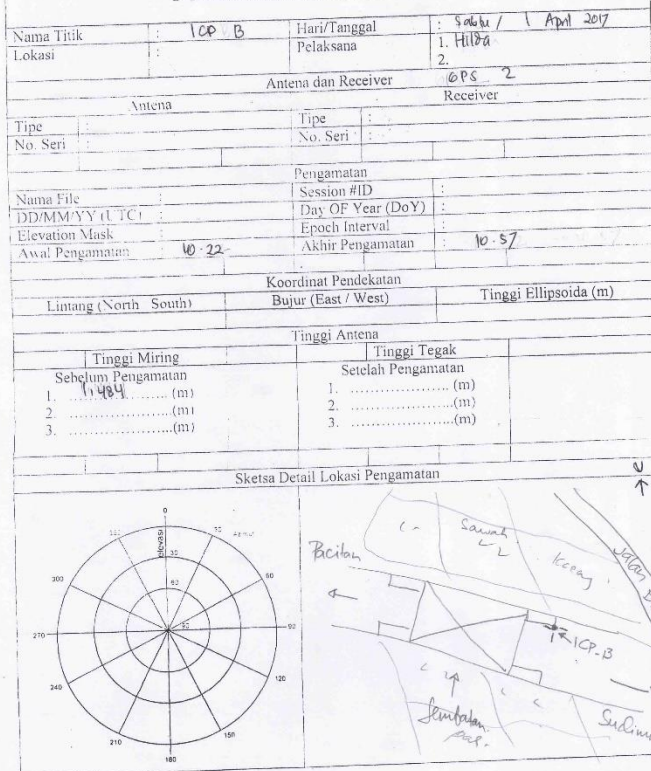 Nama Titik : ICP B Hari/Tanggal : Sabtu / 1 April 2017
Lokasi : Pelaksana 1. Hilda
2.
Antena dan Receiver GPS 2
Antena Receiver
Tipe : Tipe :
No. Seri : No. Seri :
Pengamatan
Nama File : Session #ID :
DD/MM/YY (UTC) : Day OF Year (DoY) :
Elevation Mask : Epoch Interval :
Awal Pengamatan : 10.22 Akhir Pengamatan : 10.57
Koordinat Pendekatan
Lintang (North South) Bujur (East / West) Tinggi Ellipsoida (m)
Tinggi Antena
Tinggi Miring Tinggi Tegak
Sebelum Pengamatan Setelah Pengamatan
1. 1,484 ....... (m) 1. .................... (m)
2. .................... (m) 2. .................... (m)
3. .................... (m) 3. .................... (m)
Sketsa Detail Lokasi Pengamatan
U
0
30
Elevasi
30
60
60
90
90
120
150
180
210
240
270
300
Pacitan
Sawah
Jalan
ICP-B
Jembatan